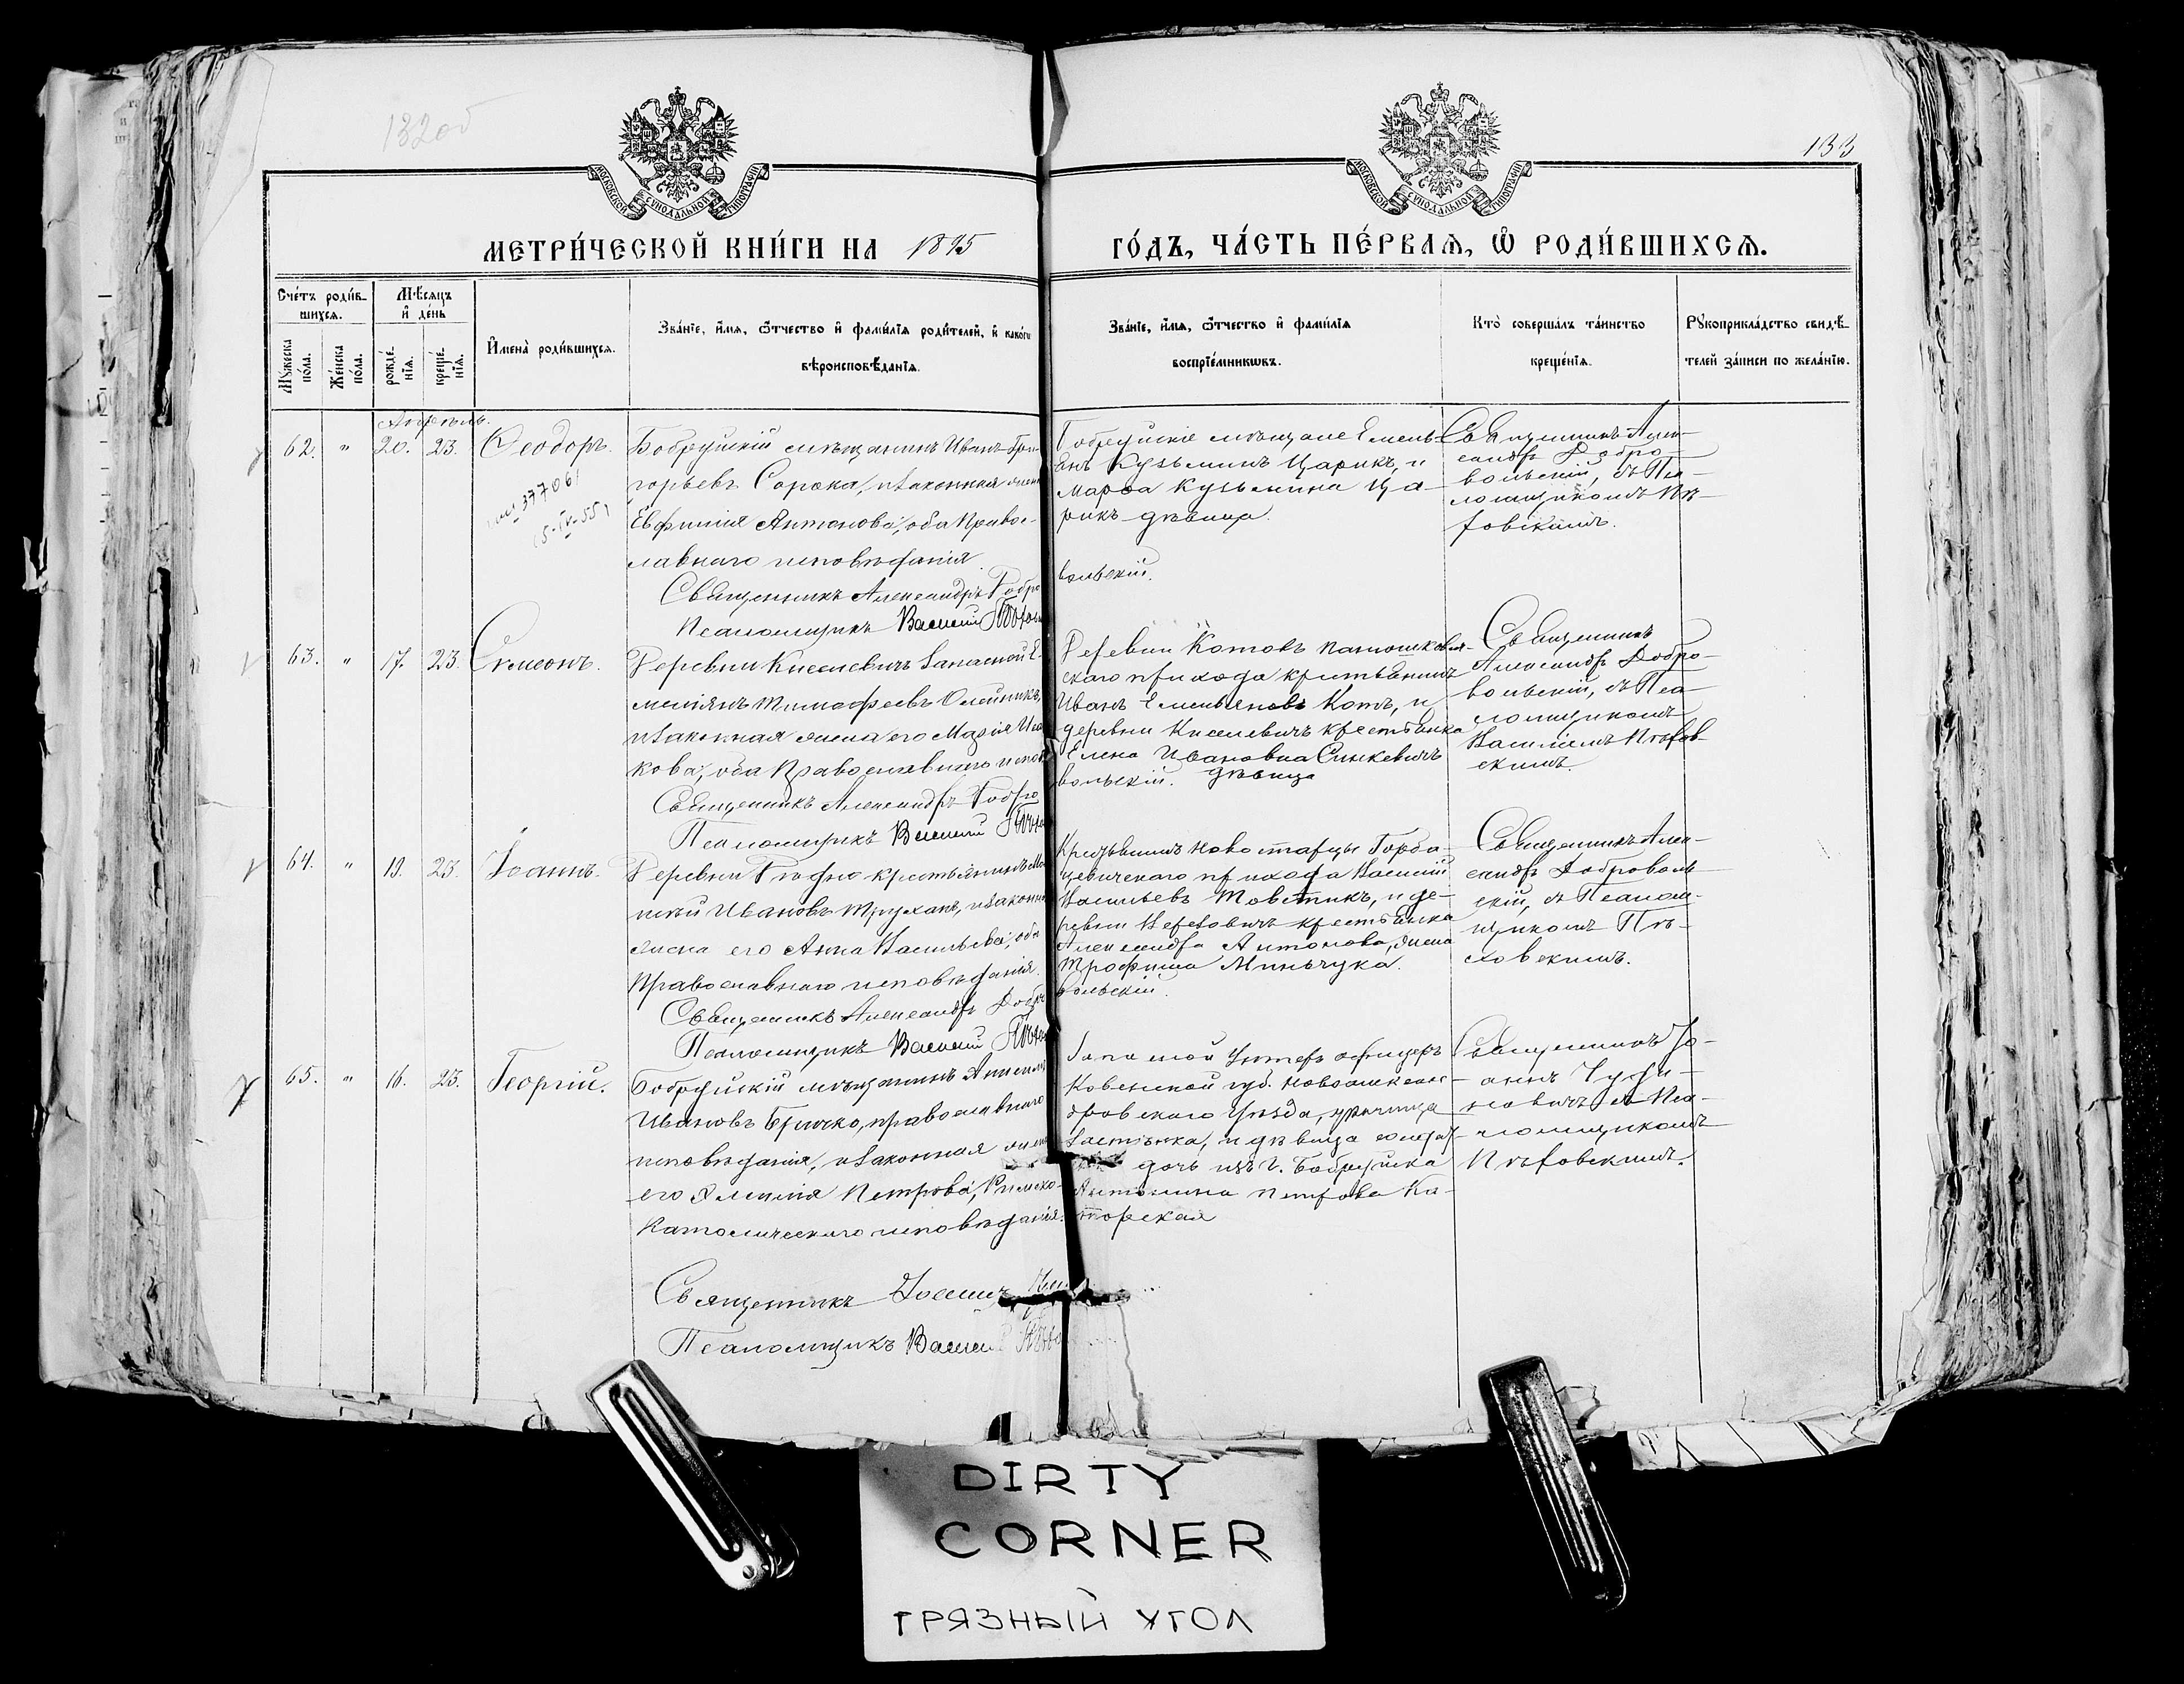 132об
133
МОСКОВСКОЙ СѴНОДАЛЬНОЙ ТИПОГРАФІИ
МОСКОВСКОЙ СѴНОДАЛЬНОЙ ТИПОГРАФІИ
МЕТРИ́ЧЕСКОЙ КНИ́ГИ НА 1895
ГО́ДЪ, ЧА́СТЬ ПЕ́РВАЯ, Ѿ РОДИ́ВШИХСЯ.
Сче́тъ роди́в-
шихся.
Мꙋ́жеска по́ла.
Же́нска по́ла.
Мѣ́сяцъ
и҆ де́нь
рожде́-
нїѧ.
креще́-
нїѧ.
И҆мена̀ роди́вшихсѧ.
Зва́нїе, и҆́мѧ, ѻ҆́тчество и҆ фами́лїѧ роди́телей, и҆ како́гѡ
вѣроисповѣ́данїѧ.
Зва́нїе, и҆́мѧ, ѻ҆́тчество и҆ фами́лїѧ
воспрїе́мникѡвъ.
Кто̀ соверша́лъ та́инство
креще́нїѧ.
Рꙋкоприкла́дство свидѣ́-
телей за́писи по жела́нїю.
Апрѣль.
62. " 20. 23. Ѳеодоръ.
37706
Бобруйскій мѣщанинъ Иванъ Гри-
горьевъ Сорока, и законная жена
Евфимія Антонова, оба Право-
славнаго исповѣданія.
Священникъ Александръ Добро
вольскій.
Псаломщикъ Василій
Бобруйскіе мѣщане Емель-
янъ Кузьминъ Царикъ, и
Марѳа Кузьмина Ца-
рикъ дѣвица.
Священникъ Алек-
сандръ Добро-
вольскій, съ Пса-
ломщикомъ Пѣ-
ровскимъ.
63. " 17. 23. Симеонъ.
Деревни Киселевичъ Запасной
Тимофеевъ Олейникъ,
и законная жена его Марія
кова, оба Православнаго
Священникъ Александръ Добро
вольскій.
Псаломщикъ Василій
Деревни Котовъ
скаго прихода крестьянинъ
Иванъ Емельяновъ Котъ, и
деревни Киселевичъ крестьянка
Елена Ивановна Синкевичъ
дѣвица
Священникъ
Александръ Добро-
вольскій, съ Пса-
ломщикомъ
Василіемъ Пѣров-
скимъ.
64. " 19. 23. Іоаннъ.
Деревни крестьянинъ
Ивановъ Труханъ, и законная
жена его Анна Васильева, оба
Православнаго исповѣданія.
Священникъ Александръ Добро
вольскій.
Псаломщикъ Василій
Горба-
цевичскаго прихода Василій
Васильевъ Товстикъ, и де-
ревни крестьянка
Александра Антонова, жена
Трофима Миньчука.
Священникъ Алек-
сандръ Доброволь
скій, съ Псалом-
щикомъ Пѣ-
ровскимъ.
65. " 16. 23. Георгій.
Бобруйскій мѣщанинъ
Ивановъ Бричко, православнаго
исповѣданія, и законная жена
его Петрова, Римско-
Католическаго исповѣданія.
Священникъ
Псаломщикъ Василій
Запасной Унтеръ офицеръ
Ковенской губ. Новоалександ-
ровскаго Уѣзда,
и дѣвица
дочь изъ г. Бобруйска
Антонина Петрова Ка-
торская
Священникъ Іо-
аннъ
съ Пса-
ломщикомъ
Пѣровскимъ.
DIRTY
CORNER
ГРЯЗНЫЙ УГОЛ